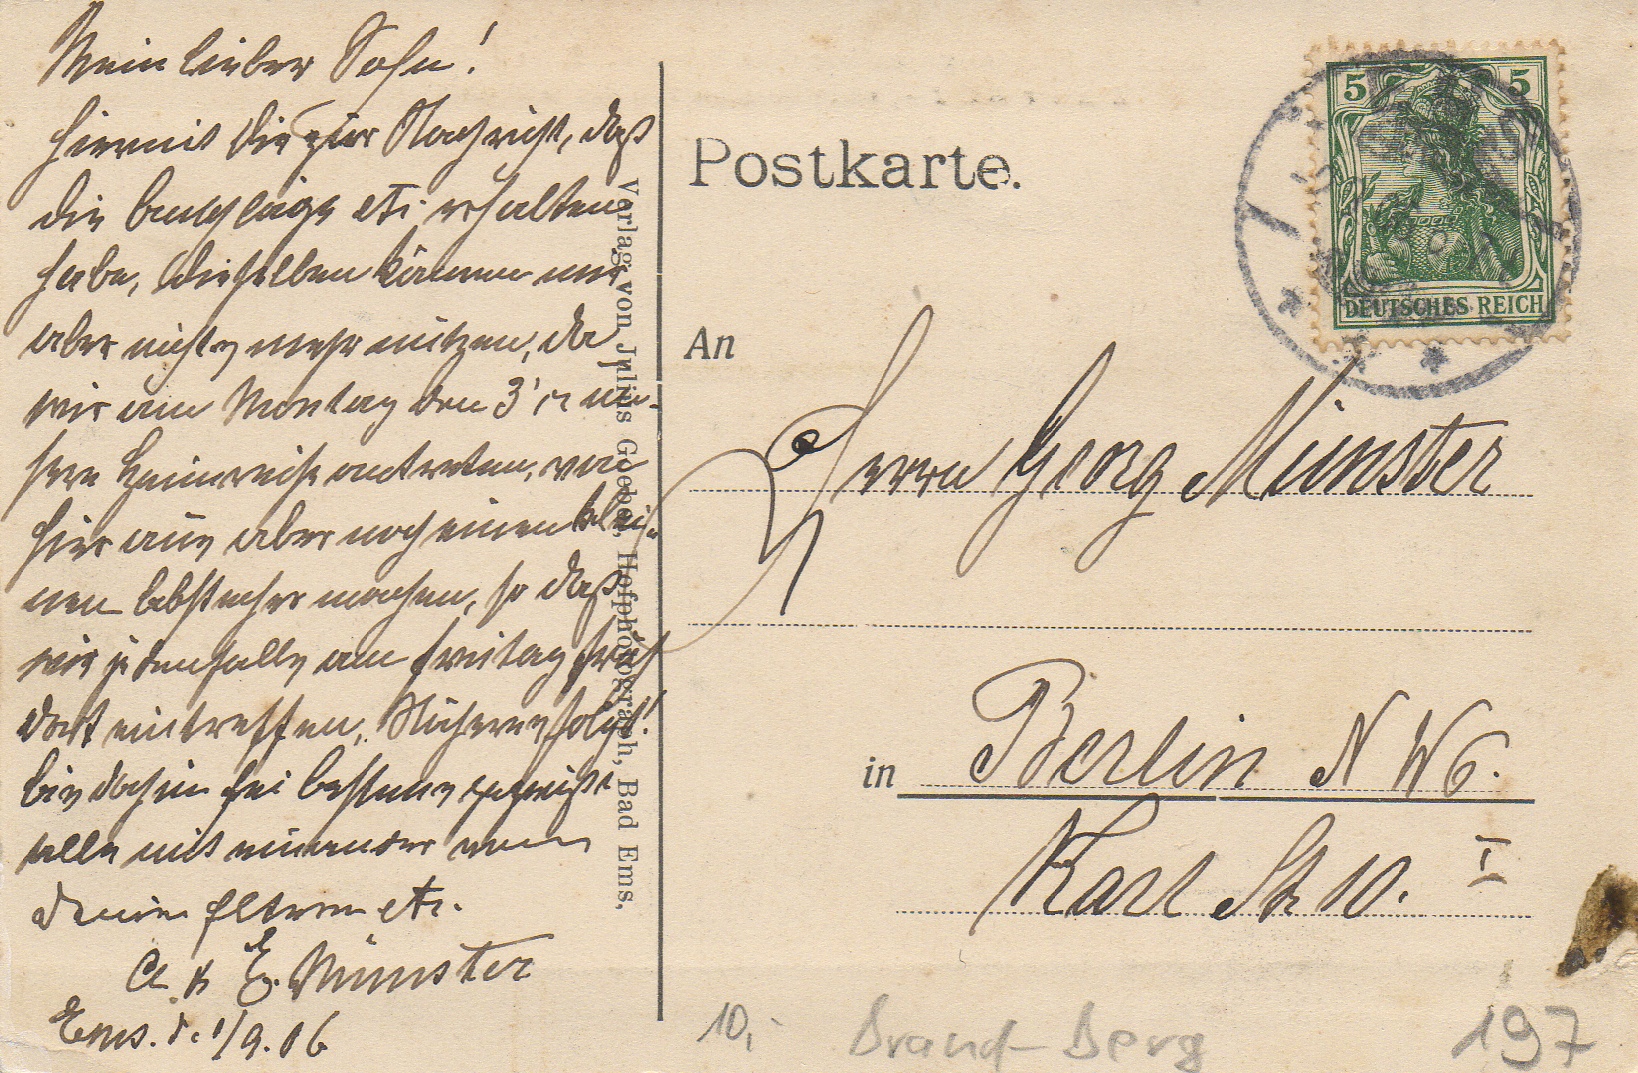 Mein lieber Sohn!
Hiermit die Nachricht, daß
die etc. erhalten
habe, dieselben können mir
aber nichts mehr nützen, da
wir am Montag den 3' un-
sere Heimreise antreten, von
hier aus aber noch einen klei-
nen Abstecher machen, so daß
wir jedenfalls am Freitag früh
dort eintreffen, Näheres folgt!
bis dahin sei bestens gegrüßt
alle mit einander von
Deinen Eltern etc.
A. u E. Münster
Ems. d. 1/9.06
Verlag von Julius Goebel, Hofphotograph, Bad Ems.
Postkarte.
5 5
DEUTSCHES REICH
An
Herrn Georg Münster
in Berlin N W 6.
Karl Str 10. I
10,-
Brand-Berg
197